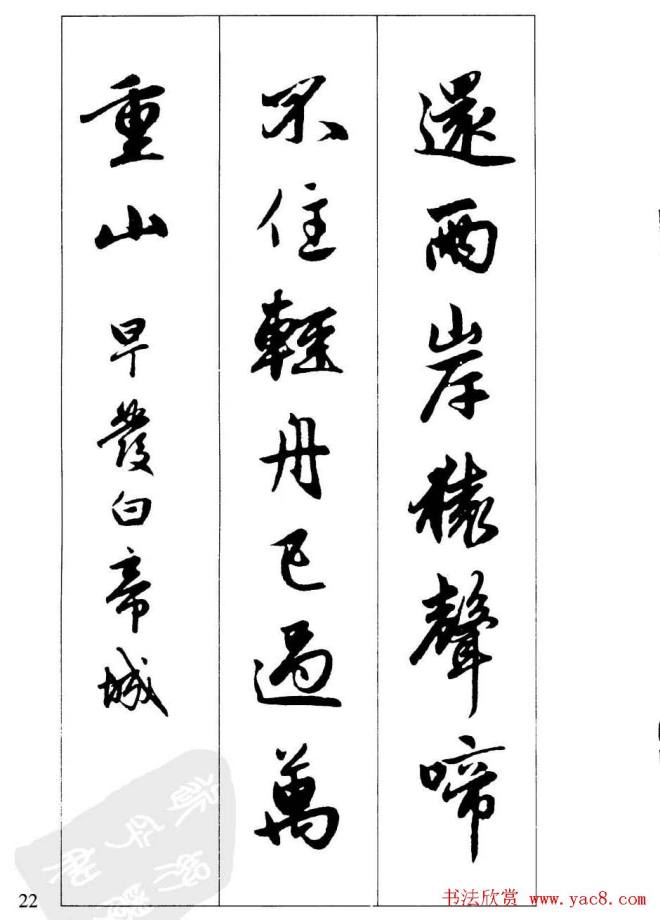 還兩岸猿聲啼
不住輕舟已過萬
重山 早發白帝城
22
书法欣赏 www.yac8.com